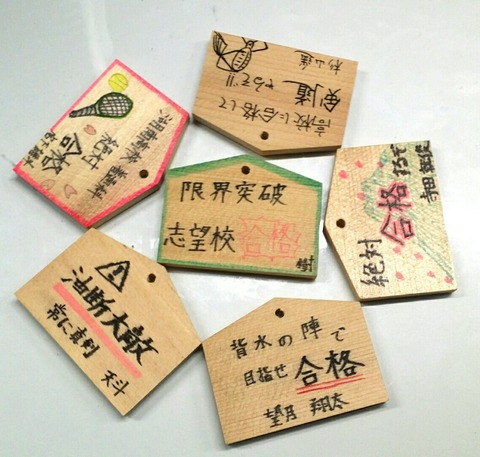 合格
高校に合格して
剣道やるぞ!!
限界突破
志望校 合格
樹
絶対 合格するぞ
油断大敵
常に真剣
天斗
背水の陣で
目指せ 合格
望月 翔太